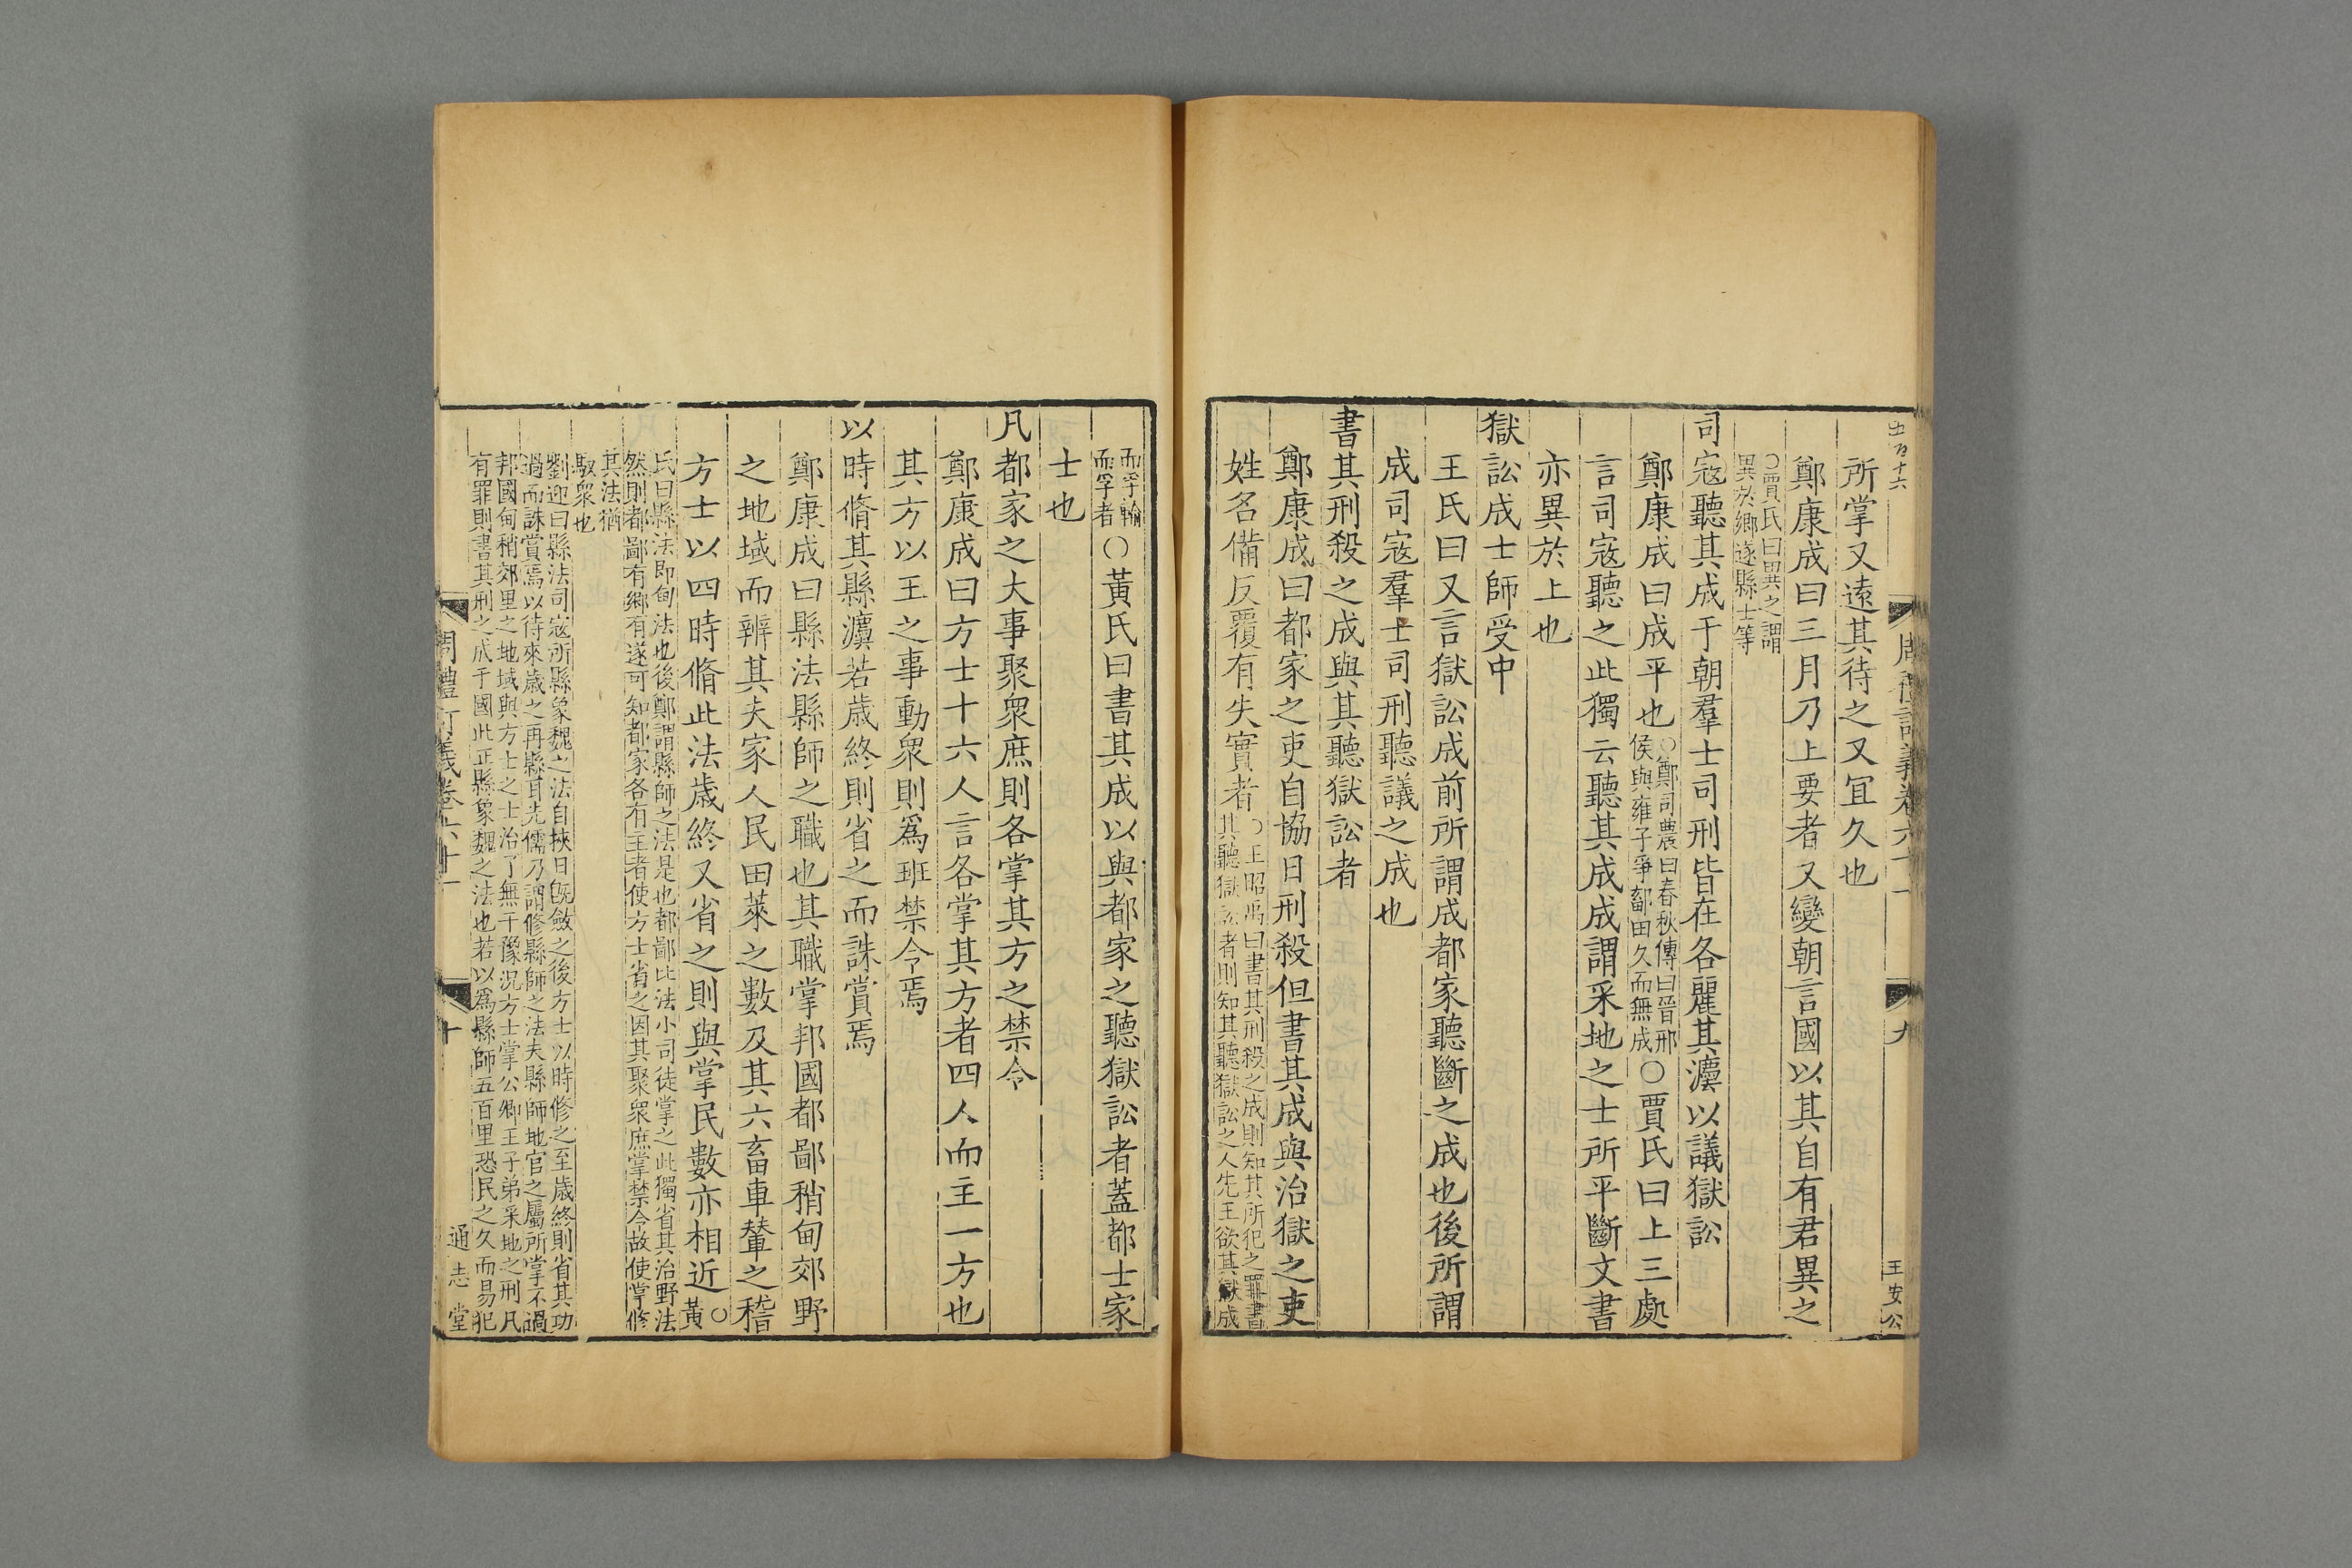 所掌又遠其待之又宜久也
鄭康成曰三月乃上要者又變朝言國以其自有君異之
○賈氏曰異之謂
異於鄉遂縣士等
司寇聽其成于朝羣士司刑皆在各麗其灋以議獄訟
鄭康成曰成平也○鄭司農曰春秋傳曰晉邢侯與雍子爭鄐田久而無成○賈氏曰上三處
言司寇聽之此獨云聽其成成謂采地之士所平斷文書
亦異於上也
獄訟成士師受中
王氏曰又言獄訟成前所謂成都家聽斷之成也後所謂
成司寇羣士司刑聽議之成也
書其刑殺之成與其聽獄訟者
鄭康成曰都家之吏自協日刑殺但書其成與治獄之吏
姓名備反覆有失實者○王昭禹曰書其刑殺之成則知其所犯之罪書其聽獄訟者則知其聽獄訟之人先王欲其獄成
周禮訂義卷六十一 九 王安公
而孚輸
而孚者○黃氏曰書其成以與都家之聽獄訟者蓋都士家
士也
凡都家之大事聚衆庶則各掌其方之禁令
鄭康成曰方士十六人言各掌其方者四人而主一方也
其方以王之事動衆則爲班禁令焉
以時脩其縣灋若歲終則省之而誅賞焉
鄭康成曰縣法縣師之職也其職掌邦國都鄙稍甸郊野
之地域而辨其夫家人民田萊之數及其六畜車輦之稽
方士以四時脩此法歲終又省之則與掌民數亦相近○黃
氏曰縣法即甸法也後鄭謂縣師之法是也都鄙比法小司徒掌之此獨省其治野法
然則都鄙有鄉有遂可知都家各有主者使方士省之因其聚衆庶掌禁令故使掌修
其法猶
馭衆也
劉迎曰縣法司寇所縣象魏之法自挾日既斂之後方士以時修之至歲終則省其功
過而誅賞焉以待來歲之再縣耳先儒乃謂修縣師之法夫縣師地官之屬所掌不過
邦國甸稍郊里之地域與方士之士治了無干豫況方士掌公卿王子弟采地之刑凡
有罪則書其刑之成于國此正縣象魏之法也若以爲縣師五百里恐民之久而易犯
周禮訂義卷六十一 十 通志堂